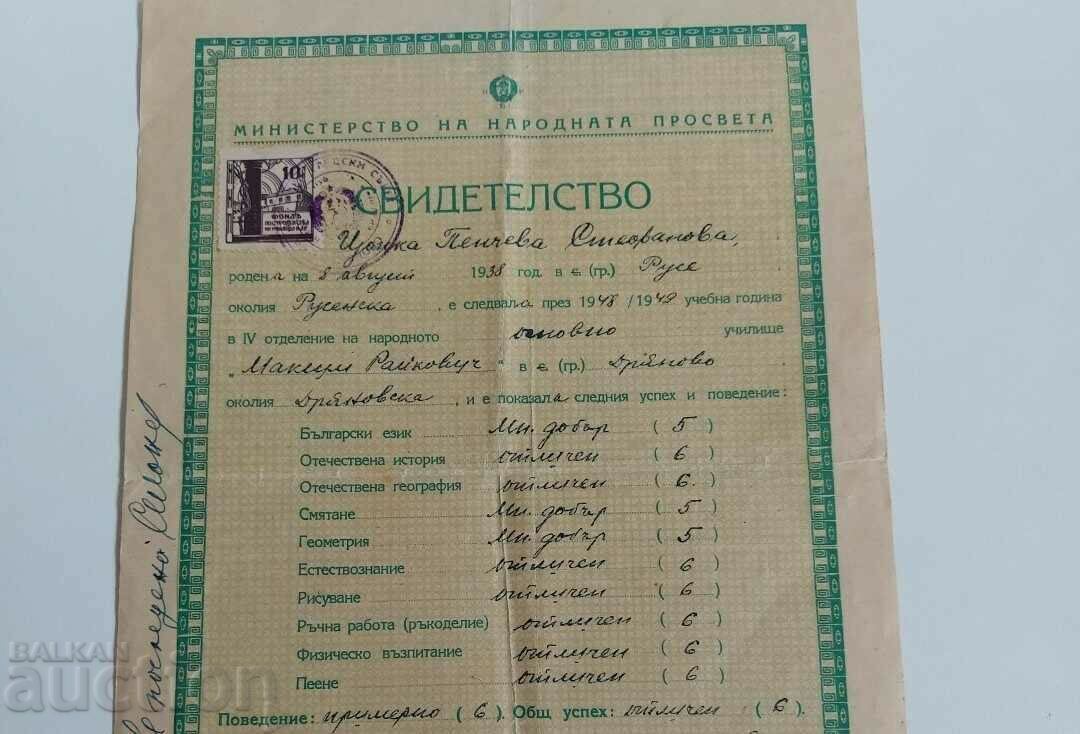 МИНИСТЕРСТВО НА НАРОДНАТА ПРОСВЕТА
10
ФОНДЪ
СВИДЕТЕЛСТВО
Цонка Пенчева Стефанова,
родена на 8 август 1938 год. в с. (гр.) Русе
околия Русенска, е следвала през 1948/1949 учебна година
в IV отделение на народното основно училище
„Максим Райкович“ в с. (гр.) Дряново
околия Дряновска, и е показала следния успех и поведение:
Български език Мн. добър (5)
Отечествена история отличен (6)
Отечествена география отличен (6.)
Смятане Мн. добър (5)
Геометрия Мн. добър (5)
Естествознание отличен (6)
Рисуване отличен (6)
Ръчна работа (ръкоделие) отличен (6)
Физическо възпитание отличен (6)
Пеене отличен (6)
Поведение: примерно (6). Общ успех: отличен (6).
BALKAN
auction